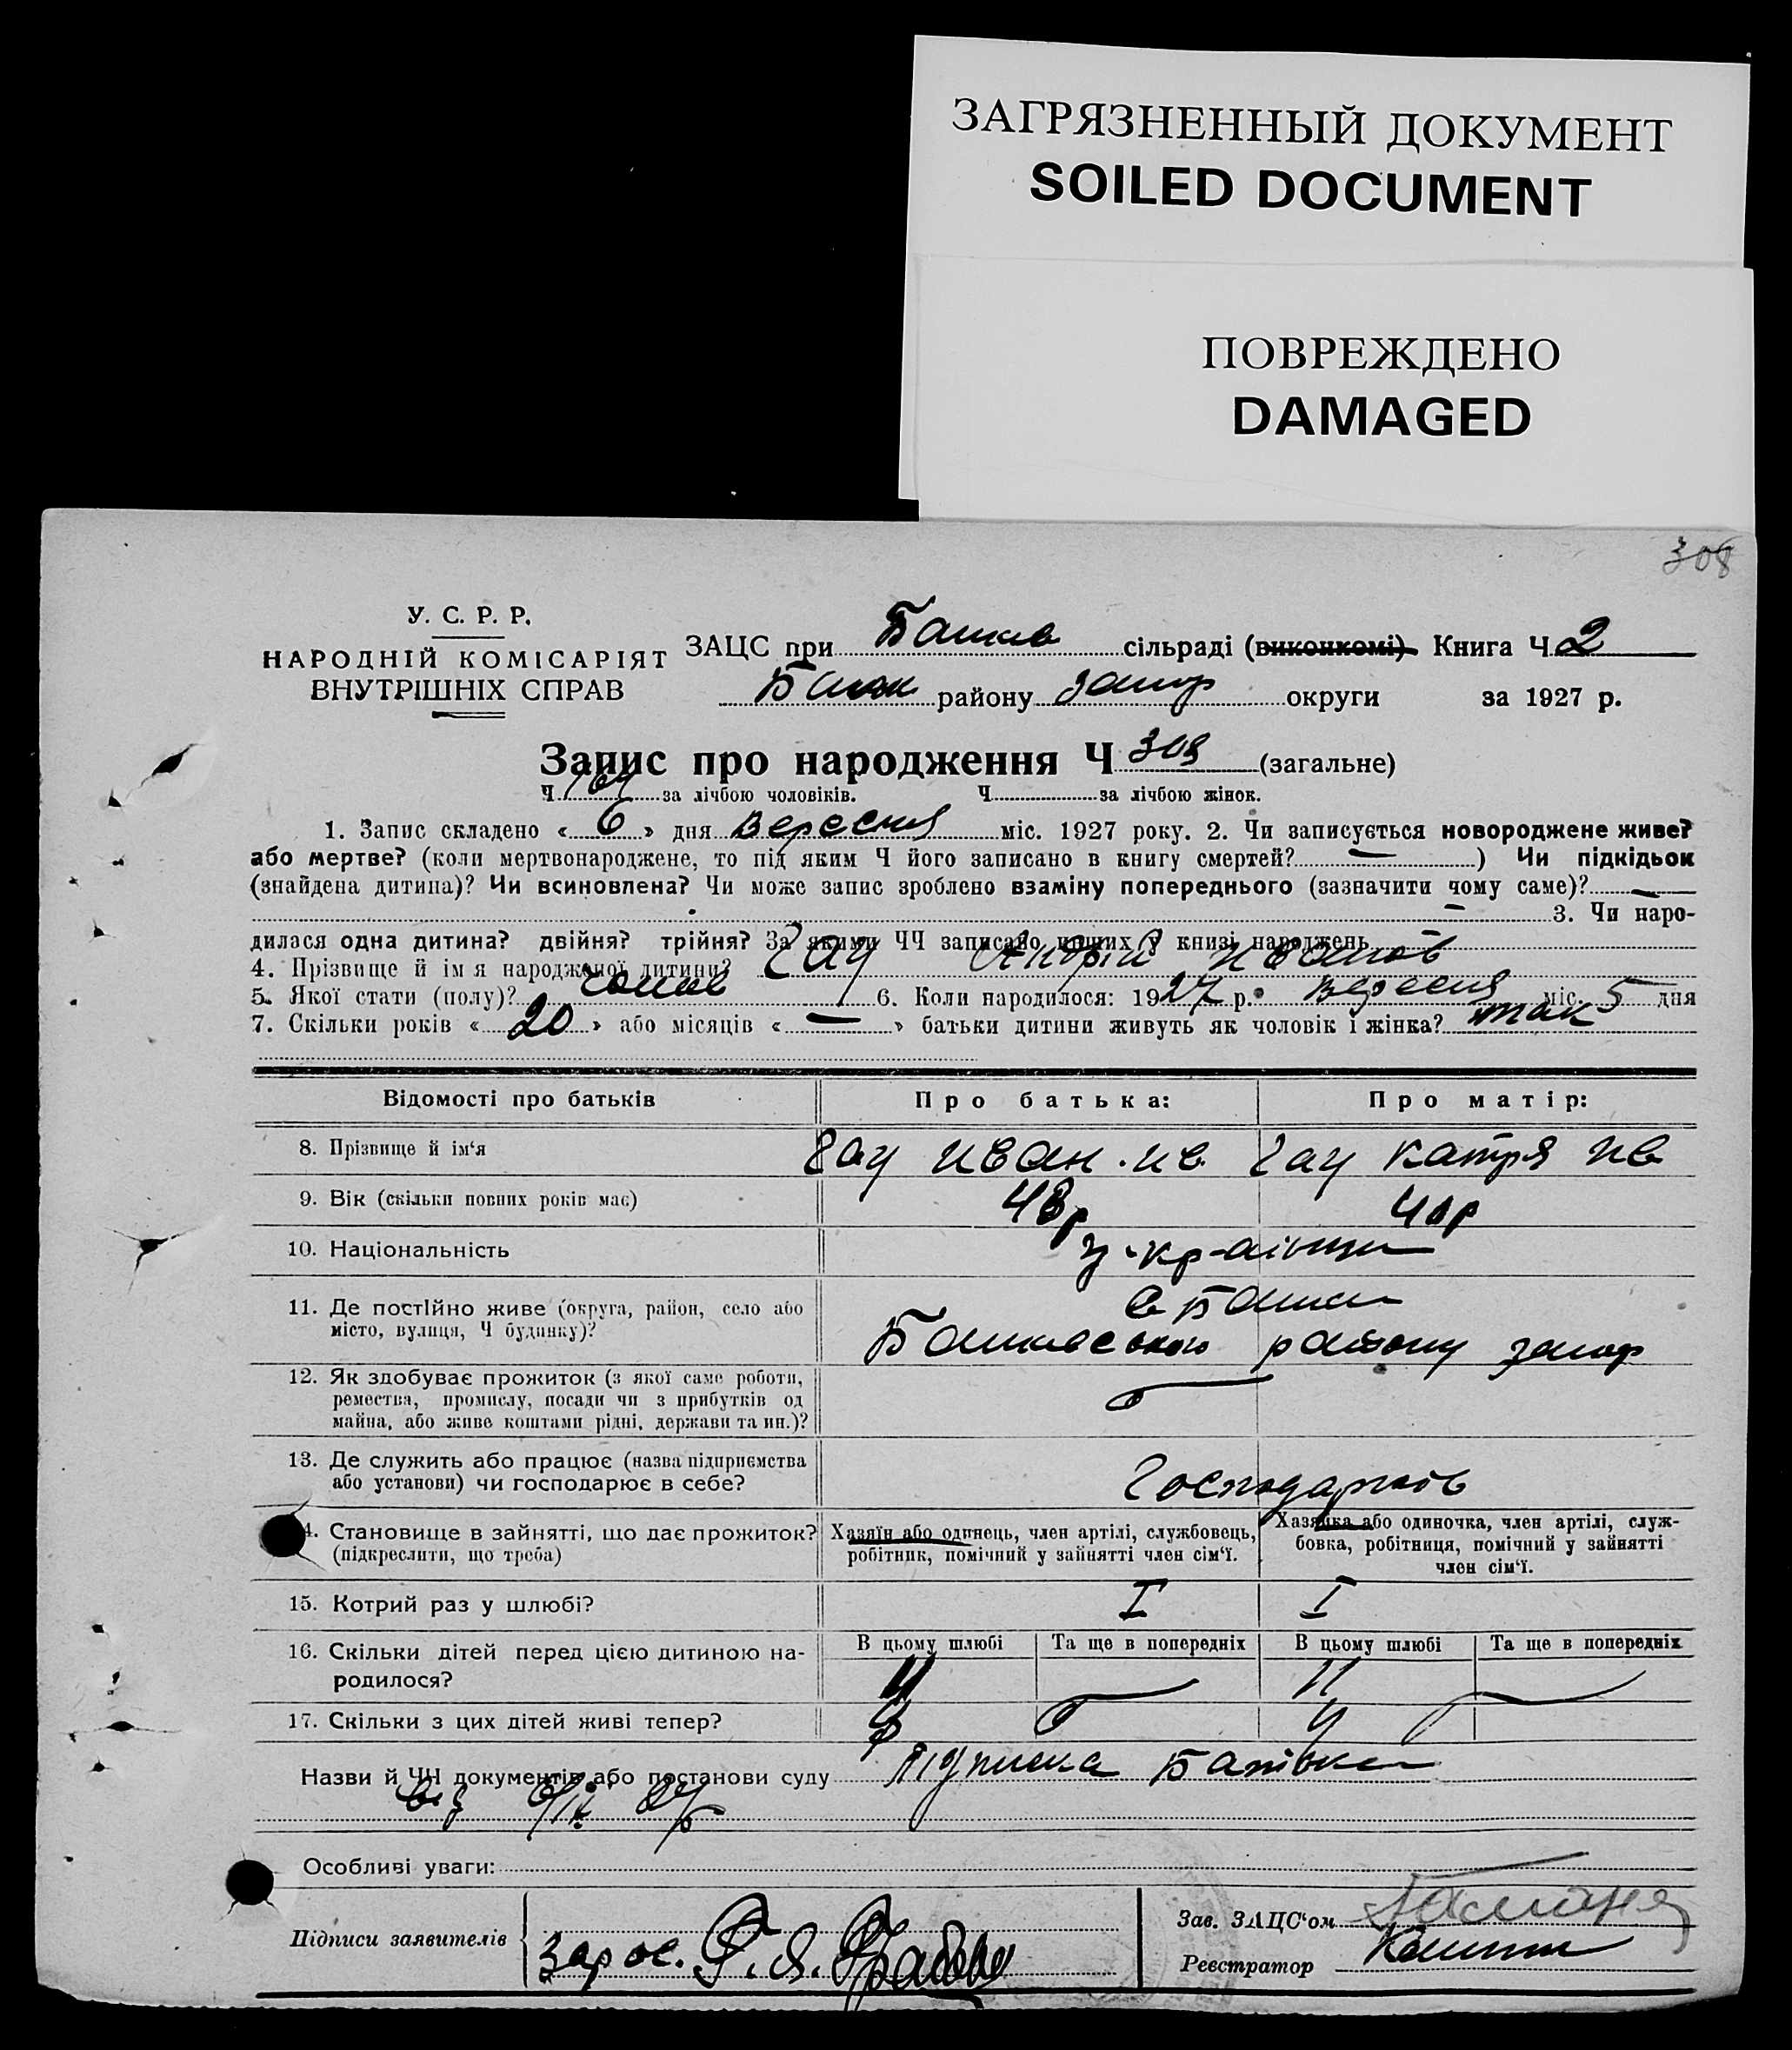 ЗАГРЯЗНЕННЫЙ ДОКУМЕНТ
SOILED DOCUMENT
ПОВРЕЖДЕНО
DAMAGED
308
У. С. Р. Р.
НАРОДНІЙ КОМІСАРІЯТ
ВНУТРІШНІХ СПРАВ
ЗАЦС при сільраді (виконкомі) Книга Ч 2
району Запор округи за 1927 р.
Запис про народження Ч 308 (загальне)
Ч 164 за лічбою чоловіків. Ч за лічбою жінок.
1. Запис складено « 6 » дня Вересня міс. 1927 року. 2. Чи записується новороджене живе?
або мертве? (коли мертвонароджене, то під яким Ч його записано в книгу смертей? — ) Чи підкідьок
(знайдена дитина)? Чи всиновлена? Чи може запис зроблено взаміну попереднього (зазначити чому саме)? —
— 3. Чи наро-
дилася одна дитина? двійня? трійня? За якими ЧЧ записано инших у книзі народжень
4. Прізвище й імя народженої дитини? Гау Андрій Иванов
5. Якої стати (полу)? 6. Коли народилося: 1927 р. Вересня міс. 5 дня
7. Скільки років « 20 » або місяців « — » батьки дитини живуть як чоловік і жінка? так
Відомості про батьків Про батька: Про матір:
8. Прізвище й ім'я Гау Иван Ив. Гау Катря Ив
9. Вік (скільки повних років має) 43 р 40 р
10. Національність українці
11. Де постійно живе (округа, район, село або
місто, вулиця, Ч будинку)?
району запор
12. Як здобуває прожиток (з якої саме роботи,
ремества, промислу, посади чи з прибутків од
майна, або живе коштами рідні, держави та ин.)?
13. Де служить або працює (назва підприємства
або установи) чи господарює в себе?
14. Становище в зайнятті, що дає прожиток?
(підкреслити, що треба)
Хазяїн або одинець, член артілі, службовець,
робітник, помічний у зайнятті член сім'ї.
Хазяйка або одиночка, член артілі, служ-
бовка, робітниця, помічний у зайнятті
член сім'ї.
15. Котрий раз у шлюбі? I I
В цьому шлюбі Та ще в попередніх В цьому шлюбі Та ще в попередніх
16. Скільки дітей перед цією дитиною на-
родилося? 11 11
17. Скільки з цих дітей живі тепер?
Назви й ЧЧ документів або постанови суду Підписка Батька
Особливі уваги:
Підписи заявителів
Зав. ЗАЦС'ом
Реєстратор